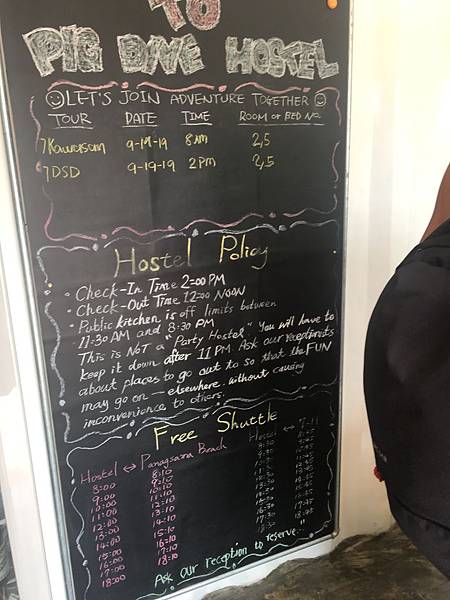 TO
PIG DAVE HOSTEL
LET'S JOIN ADVENTURE TOGETHER
TOUR DATE TIME ROOM or BED No.
7Kawasan 9-19-19 8AM 2,5
7DSD 9-19-19 2PM 2,5
Hostel Policy
• Check-In Time 2:00 PM
• Check-Out Time 12:00 NOON
• Public kitchen is off limits between
11:30 AM and 8:30 PM
• This is NOT a "Party Hostel" You will have to
keep it down after 11 PM. Ask our receptionists
about places to go out to so that the FUN
may go on — elsewhere without causing
inconvenience to others.
Free Shuttle
Hostel ↔ Panagsama Beach Hostel ↔ 7-11
8:00 8:10
9:00 9:10
10:00 10:10
11:00 11:10
12:00 12:10
13:00 13:10
14:00 14:10
15:00 15:10
16:00 16:10
17:00 17:10
18:00 18:10
Ask our reception to reserve."